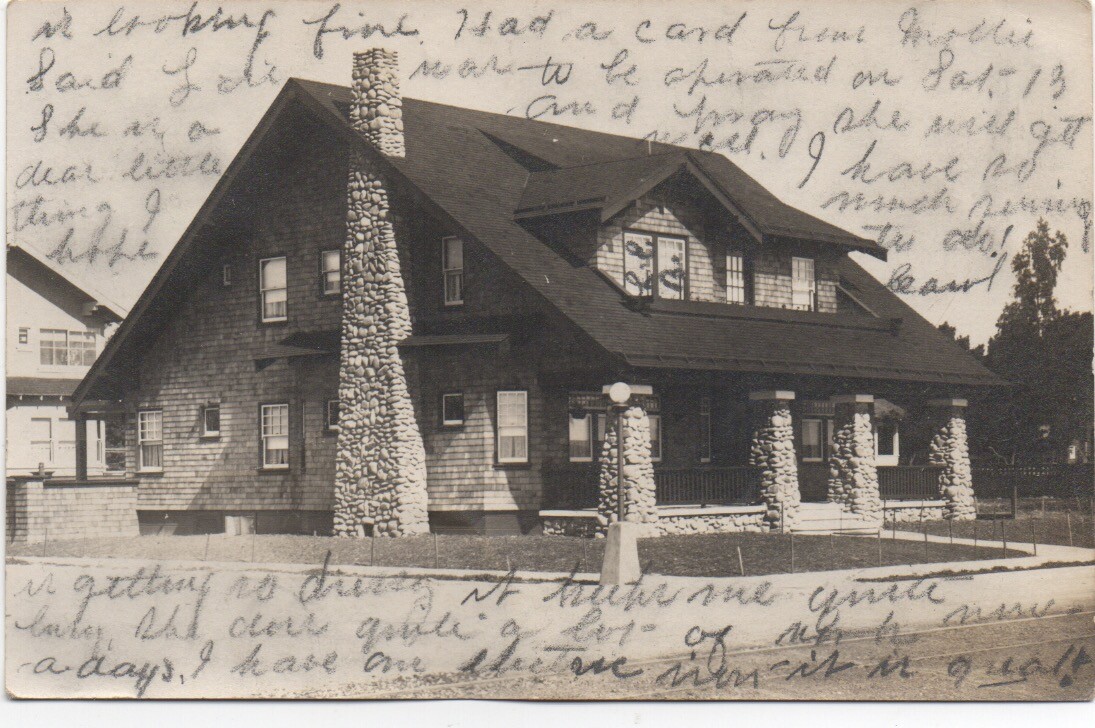 is looking fine. Had a card from Mollie
Said L was to be operated on Sat. 13
She is a and pray she will get
dear little well. I have so
thing I much
hope to do!
is getting so dressy it keeps me quite
busy. She does quite a lot of
-a-days. I have an electric iron - it is great!